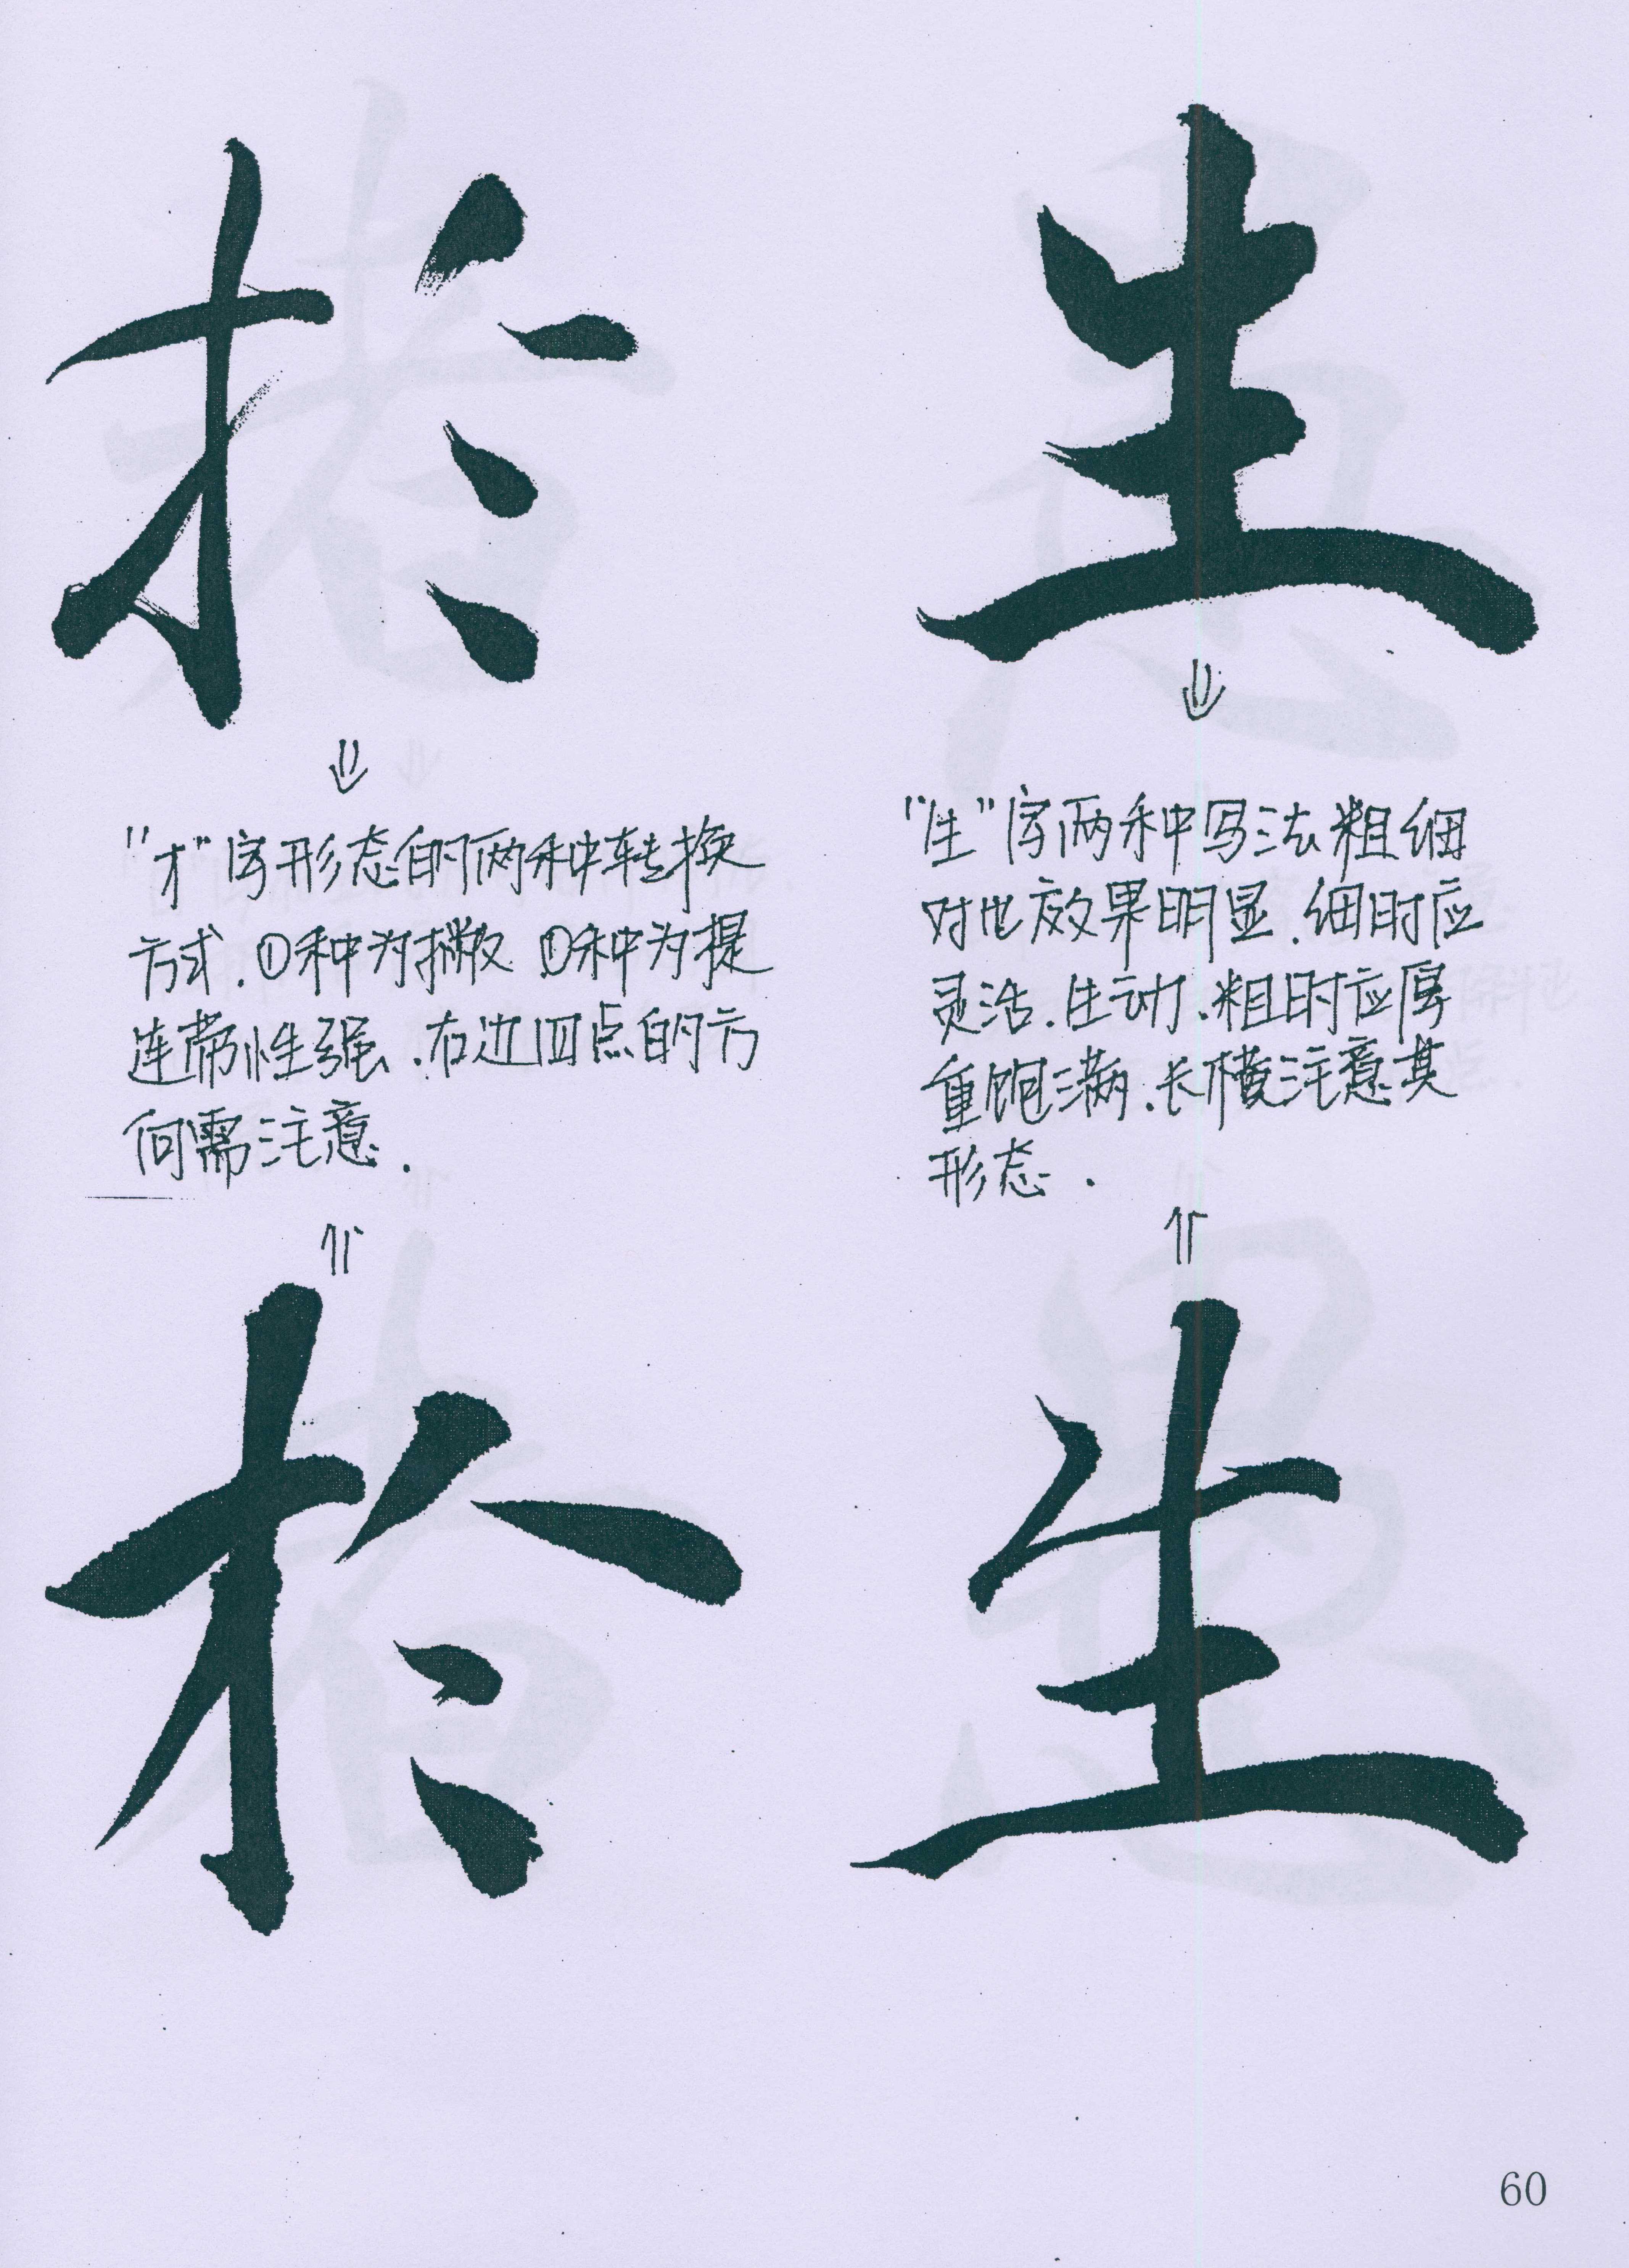 於
生
"才"字形态的两种转换
方式.①种为撇 ①种为提
连带性强.右边四点的方
向需注意.
"生"字两种写法粗细
对比效果明显.细时应
灵活.生动.粗时应厚
重饱满.长横注意其
形态.
於
生
60